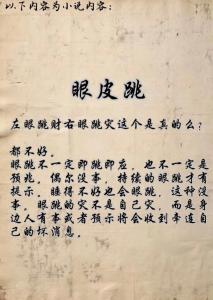 以下内容为小说内容：
眼皮跳
左眼跳财右眼跳灾这个是真的么？
都不好。
眼跳不一定即跳即应，也不一定是
预兆，偶尔没事，持续的眼跳才有
提示，睡得不好也会眼跳，这种没
事，眼跳的灾不是自己灾，而是身
边人有事或者预示将会收到牵连自
己的坏消息。